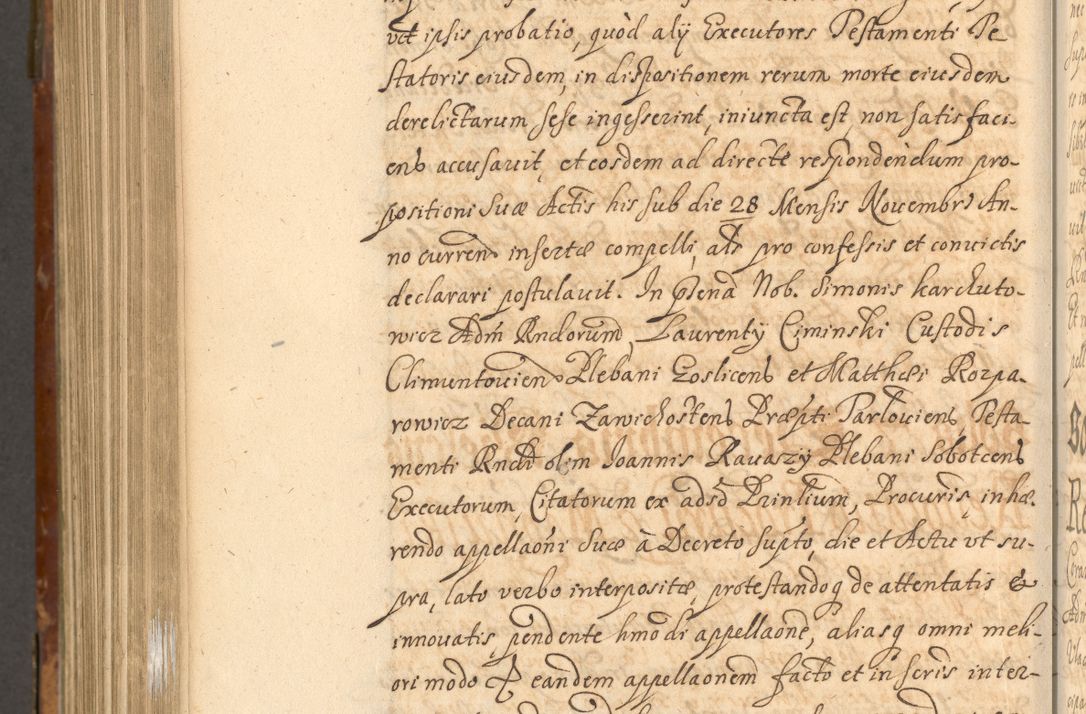 vt ipsis probatio, quòd alij Executores Testamenti Te
statoris eiusdem, in dispositionem rerum morte eiusdem
derelictarum sese ingesserint, iniuncta est, non satisfaci-
ens accusavit, et eosdem ad directè respondendum pro-
positioni suæ Actis his sub die 28 Mensis Novembris An-
no curren insertæ compelli, als pro confessis et convictis
declarari postulavit. In pñtia Nob. Simonis Karchuto-
wicz Adm Rndorum, Laurentij Ciminski Custodis
Climuntovien Plebani Goslicens et Matthæi Rozpa-
rowicz Decani Zawichostens Præpti Parlowiens, Testa-
menti Rndi olim Joannis Ravaszy Plebani Sobotcens
Executorum, Citatorum ex adsd Prinlium, Procuris, inhæ-
rendo appellaõni suæ à Decreto supto, die et Actu vt su-
pra, lato verbo interpositæ, protestandoq de attentatis &
innovatis, pendente hmodi appellaone, aliasq omni meli-
ori modo eandem appellaonem facto et in scris inter-